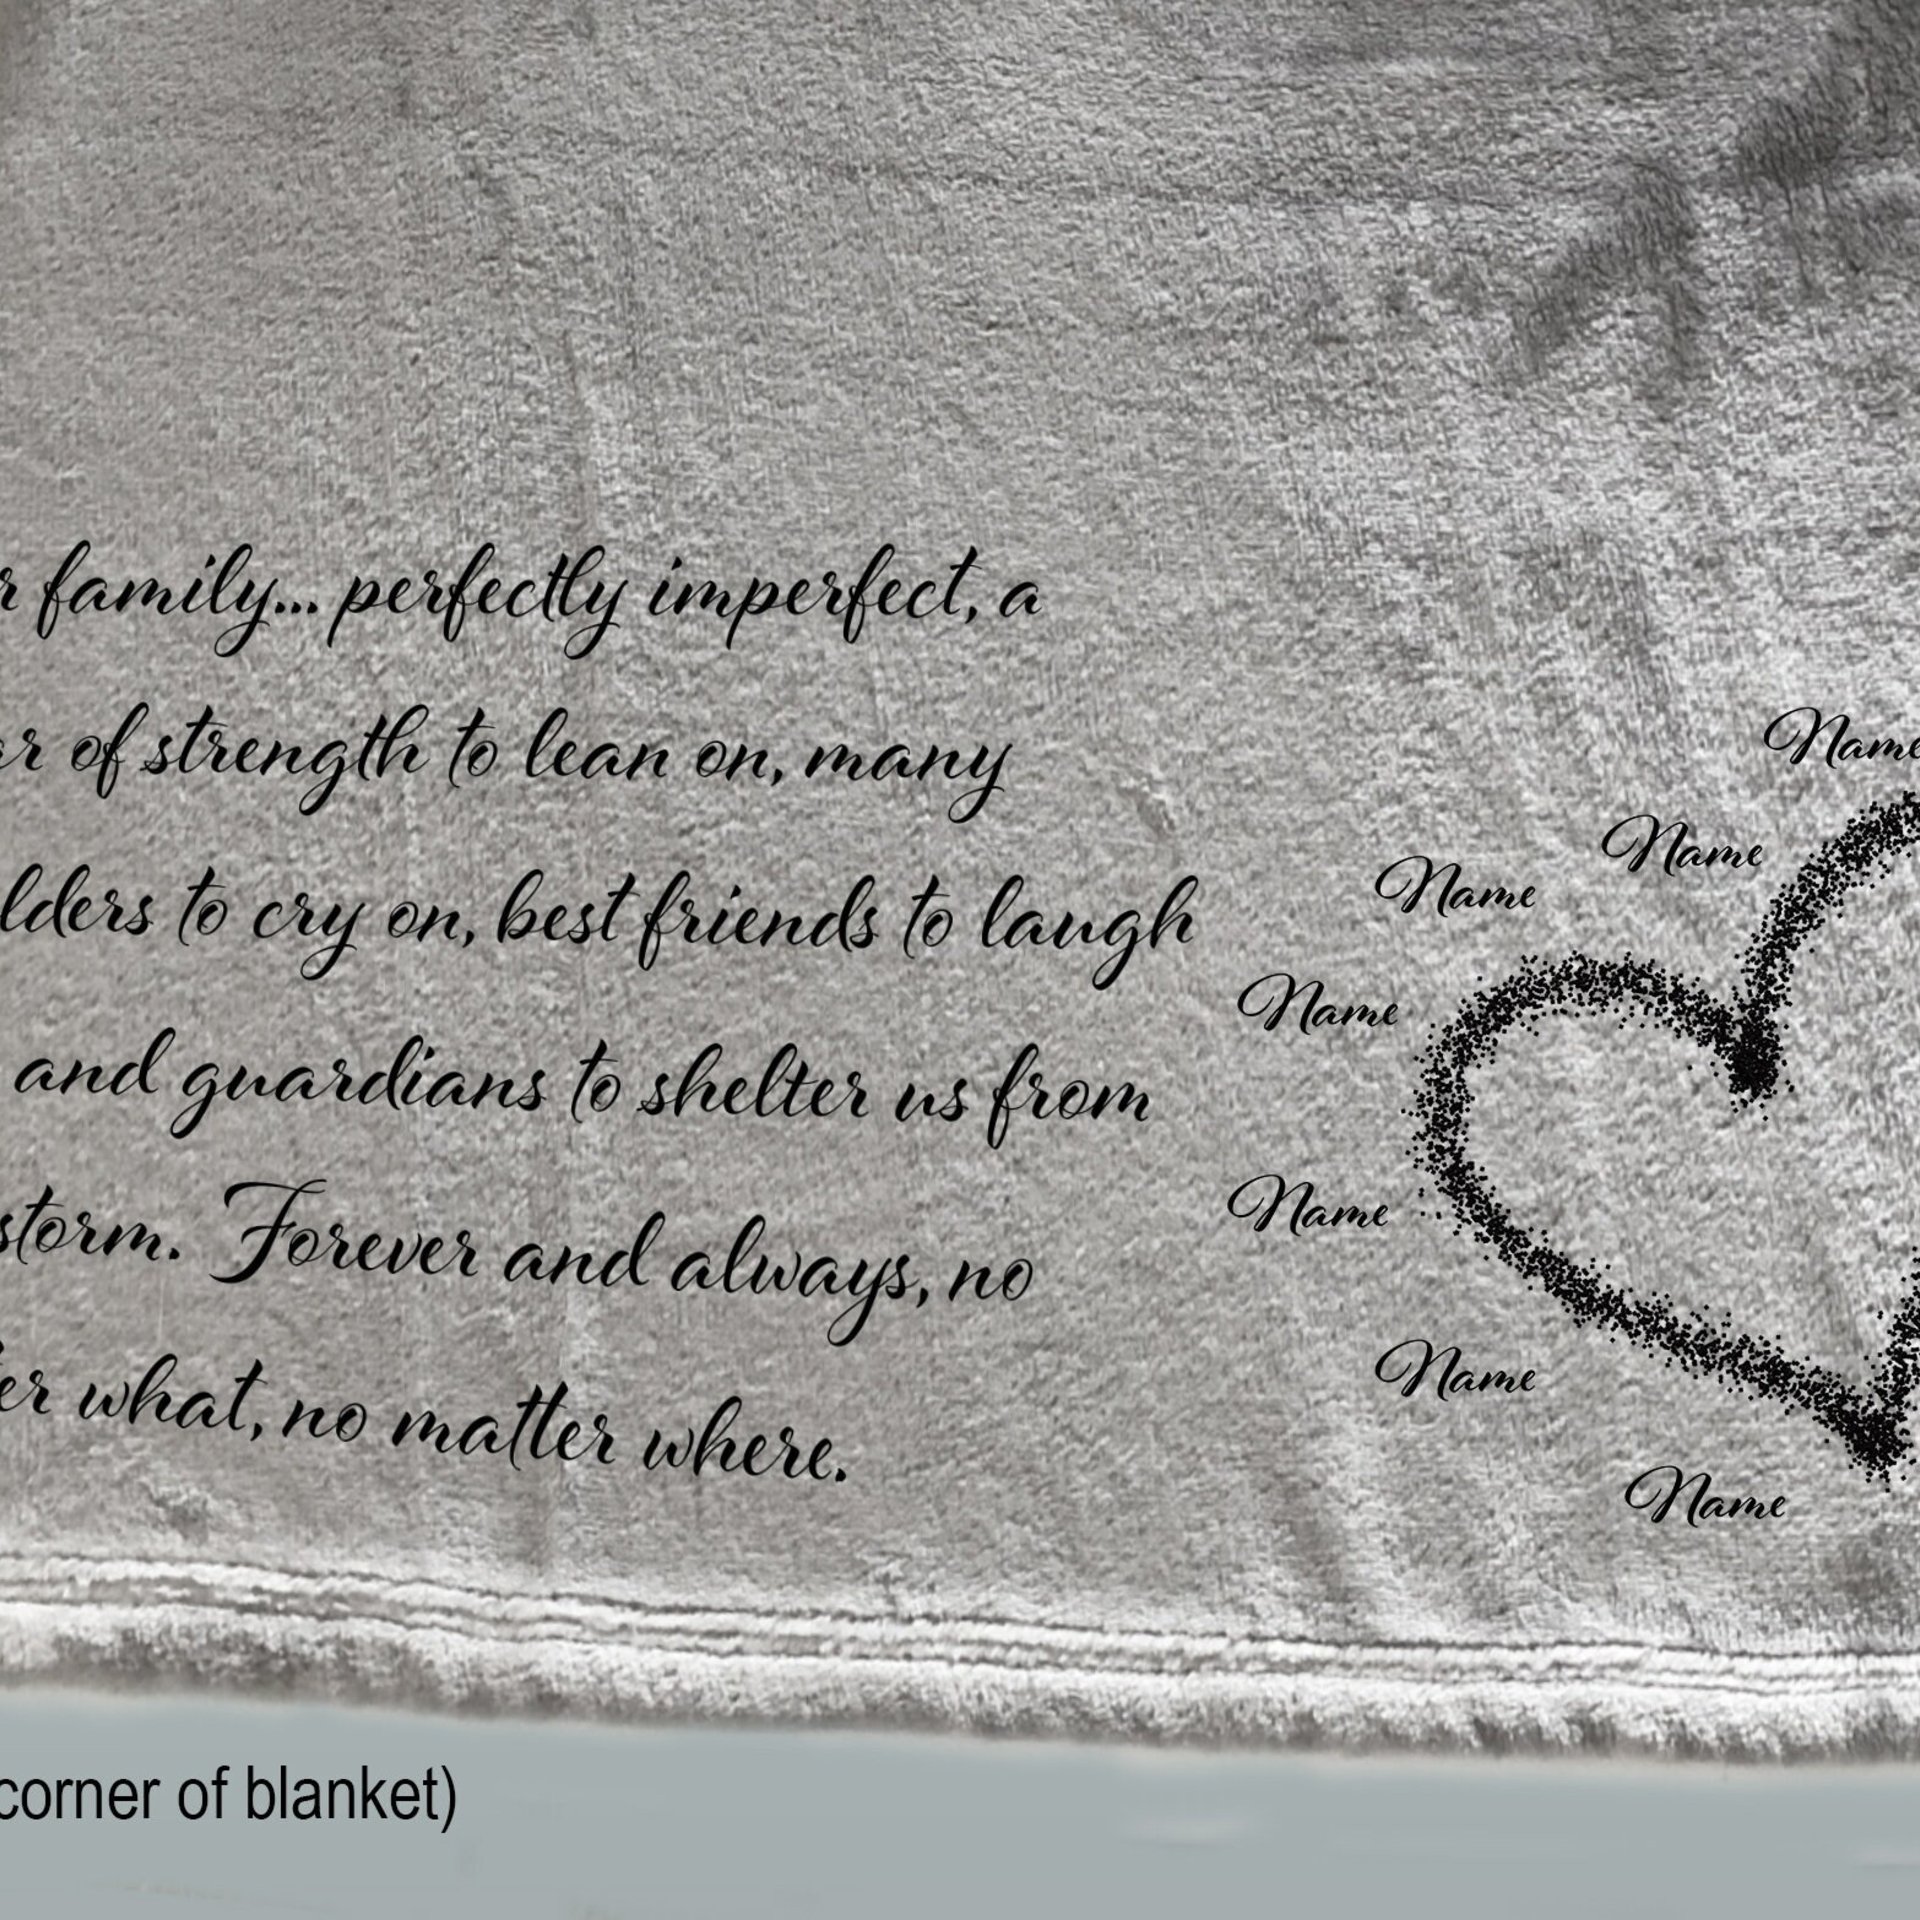 family... perfectly imperfect, a
of strength to lean on, many
to cry on, best friends to laugh
and guardians to shelter us from
storm. Forever and always, no
what, no matter where.
Name
Name
Name
Name
Name
Name
Name
corner of blanket)